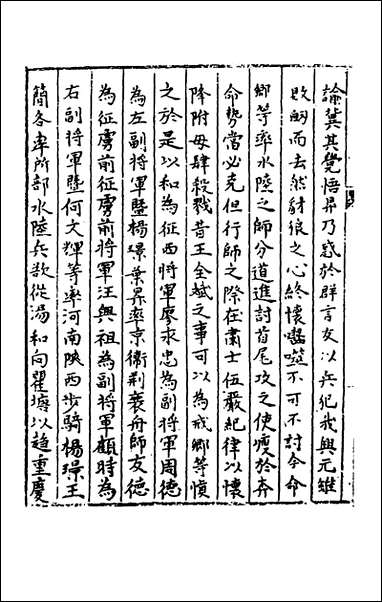 諭冀其覺悟昇乃惑於群言友以兵犯我興元雖
敗衂而去然豺狼之心終懷噬不可不討今命
卿等率水陸之師分道進討首尾攻之使疲於奔
命勢當必克但行師之際在肅士伍嚴紀律以懷
降附毋肆殺戮昔王全斌之事可以為戒卿等慎
之於是以和為征西將軍廖永忠為副將軍周德
為左副將軍暨楊璟葉昇率京衛荊襄舟師友德
為征虜前征虜前將軍汪興祖為副將軍顧時為
右副將軍暨何文輝等率河南陝西步騎楊璟王
簡各率所部水陸兵數從湯和向瞿塘以趨重慶